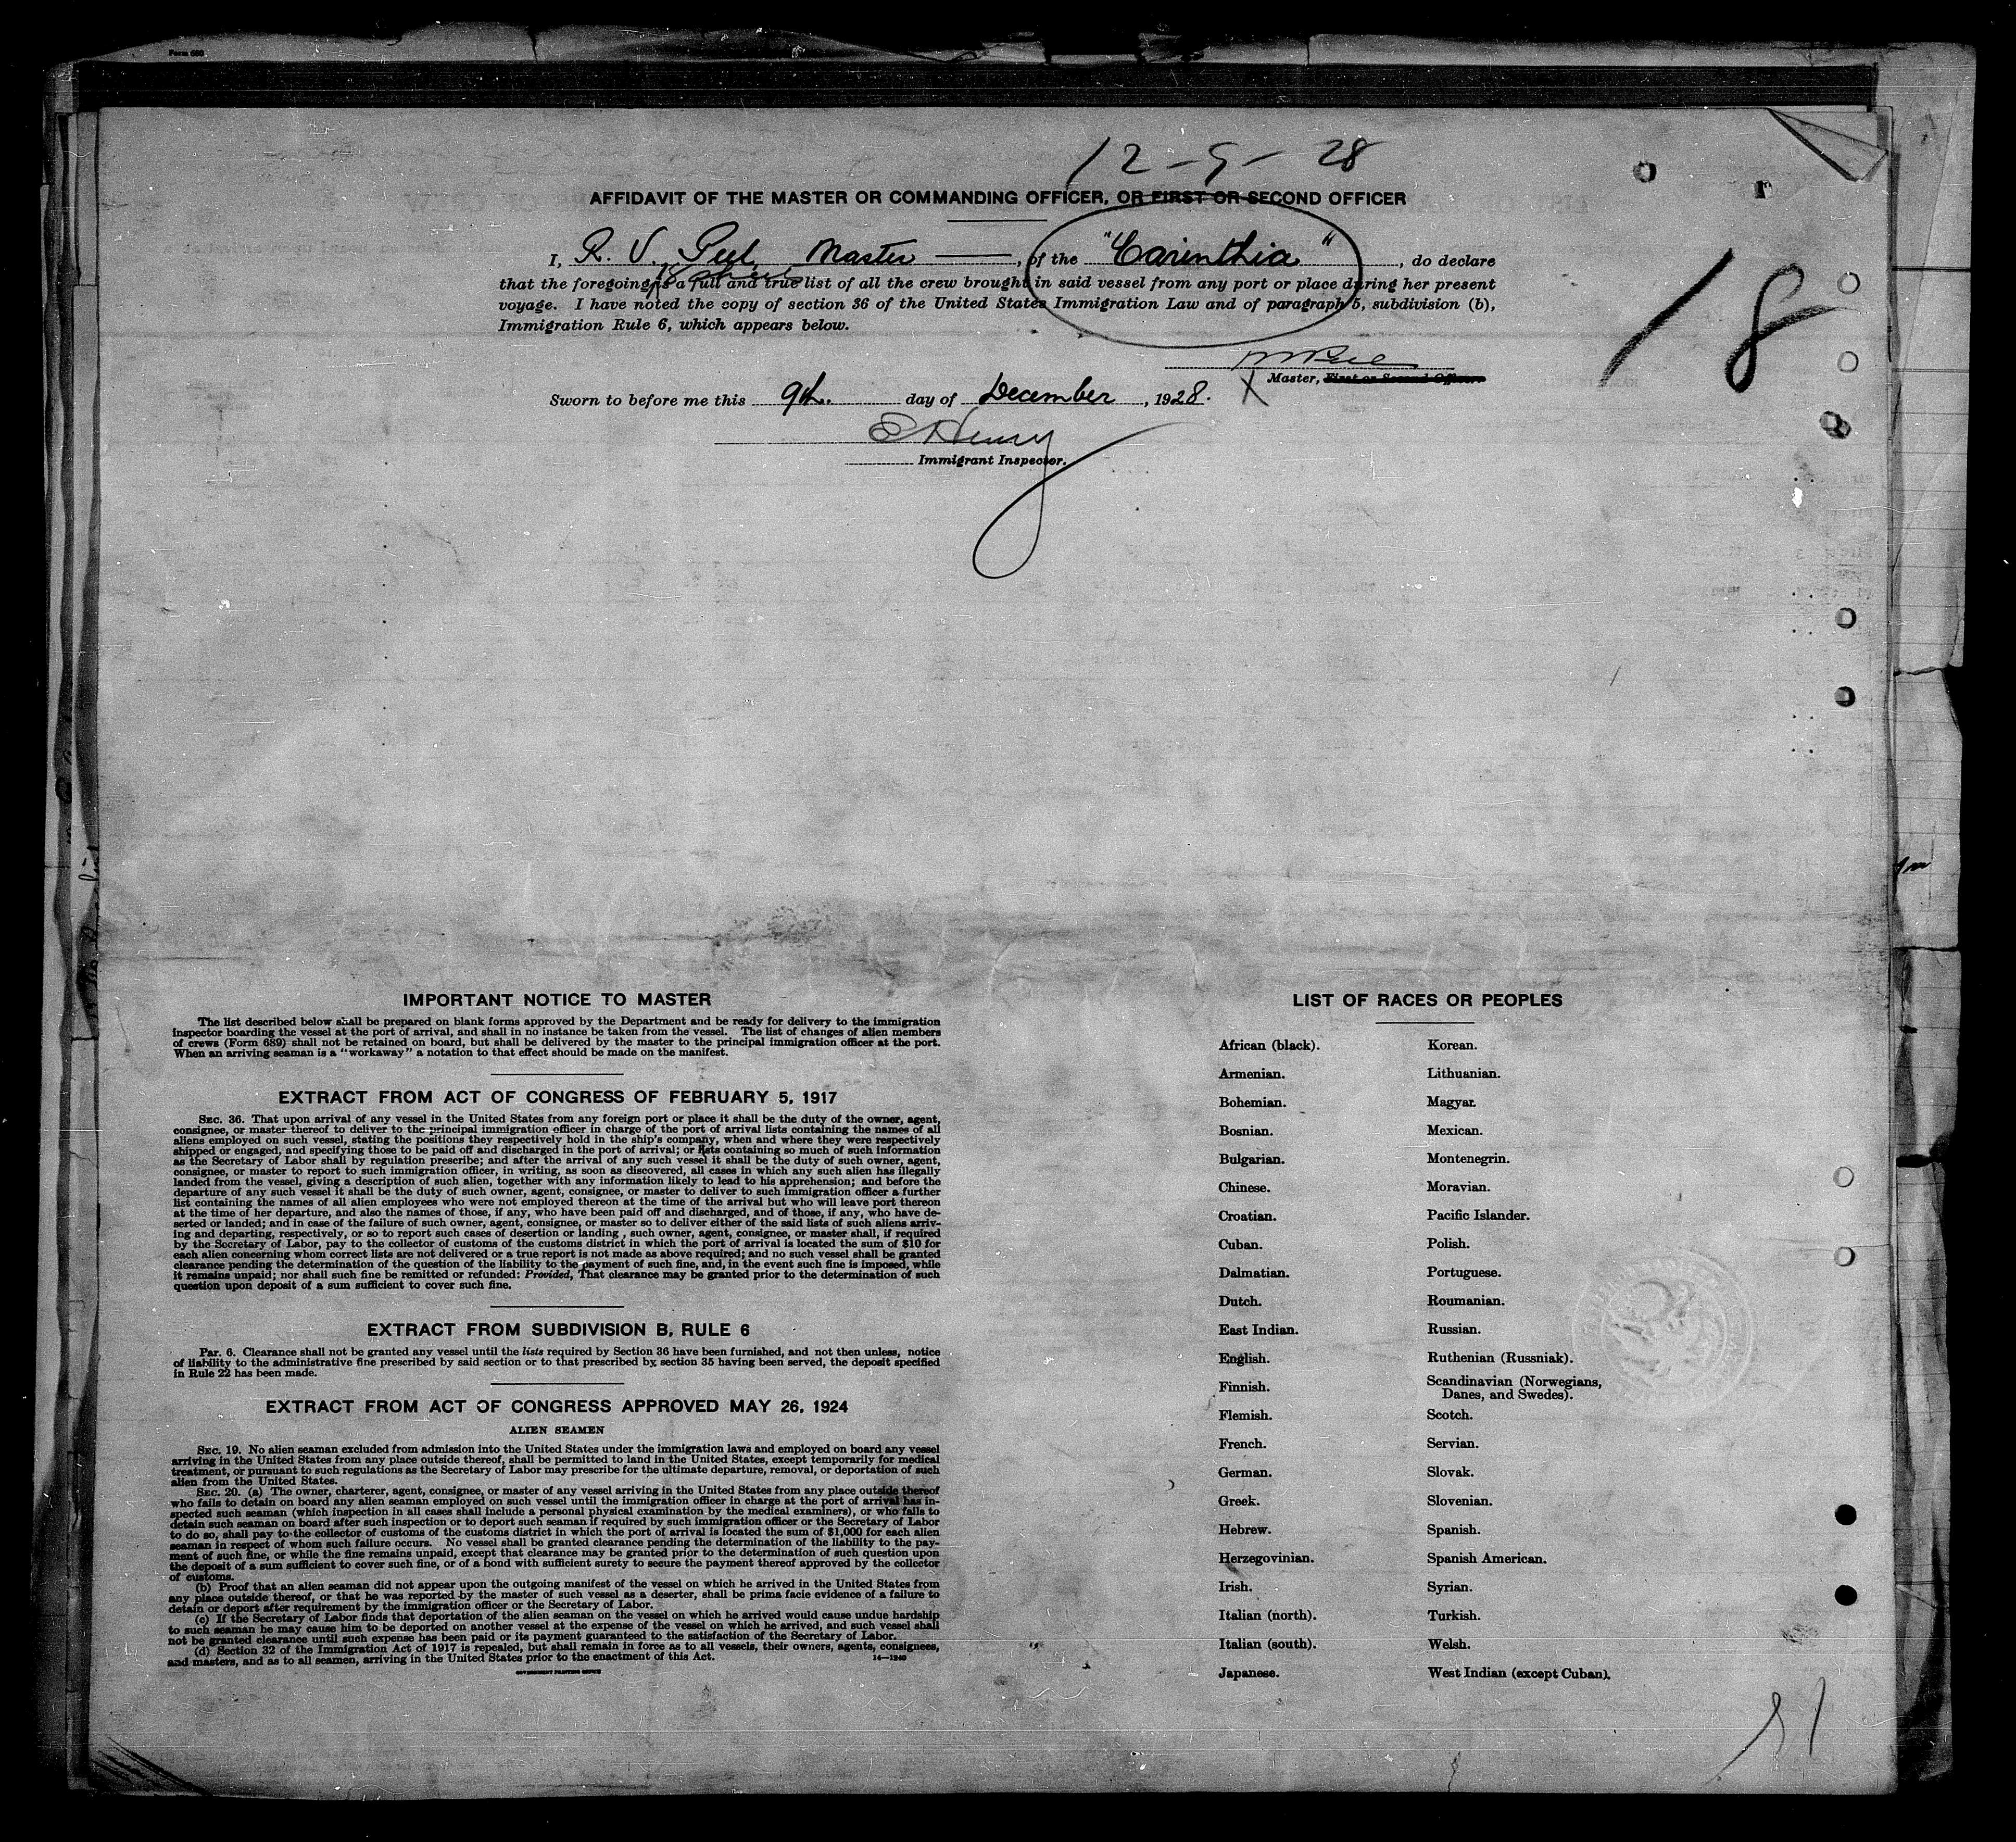 Form 680
12-9-28
AFFIDAVIT OF THE MASTER OR COMMANDING OFFICER, OR FIRST OR SECOND OFFICER
I, R. V. Peel, Master, of the "Carinthia", do declare
18 sheets
that the foregoing is a full and true list of all the crew brought in said vessel from any port or place during her present
voyage. I have noted the copy of section 36 of the United States Immigration Law and of paragraph 5, subdivision (b),
Immigration Rule 6, which appears below.
18
X Master, First or Second Officer.
Sworn to before me this 9th. day of December, 1928.
E Henry
Immigrant Inspector.
IMPORTANT NOTICE TO MASTER
The list described below shall be prepared on blank forms approved by the Department and be ready for delivery to the immigration
inspector boarding the vessel at the port of arrival, and shall in no instance be taken from the vessel. The list of changes of alien members
of crews (Form 689) shall not be retained on board, but shall be delivered by the master to the principal immigration officer at the port.
When an arriving seaman is a "workaway" a notation to that effect should be made on the manifest.
EXTRACT FROM ACT OF CONGRESS OF FEBRUARY 5, 1917
SEC. 36. That upon arrival of any vessel in the United States from any foreign port or place it shall be the duty of the owner, agent,
consignee, or master thereof to deliver to the principal immigration officer in charge of the port of arrival lists containing the names of all
aliens employed on such vessel, stating the positions they respectively hold in the ship's company, when and where they were respectively
shipped or engaged, and specifying those to be paid off and discharged in the port of arrival; or lists containing so much of such information
as the Secretary of Labor shall by regulation prescribe; and after the arrival of any such vessel it shall be the duty of such owner, agent,
consignee, or master to report to such immigration officer, in writing, as soon as discovered, all cases in which any such alien has illegally
landed from the vessel, giving a description of such alien, together with any information likely to lead to his apprehension; and before the
departure of any such vessel it shall be the duty of such owner, agent, consignee, or master to deliver to such immigration officer a further
list containing the names of all alien employees who were not employed thereon at the time of the arrival but who will leave port thereon
at the time of her departure, and also the names of those, if any, who have been paid off and discharged, and of those, if any, who have de-
serted or landed; and in case of the failure of such owner, agent, consignee, or master so to deliver either of the said lists of such aliens arriv-
ing and departing, respectively, or so to report such cases of desertion or landing, such owner, agent, consignee, or master shall, if required
by the Secretary of Labor, pay to the collector of customs of the customs district in which the port of arrival is located the sum of $10 for
each alien concerning whom correct lists are not delivered or a true report is not made as above required; and no such vessel shall be granted
clearance pending the determination of the question of the liability to the payment of such fine, and, in the event such fine is imposed, while
it remains unpaid; nor shall such fine be remitted or refunded: Provided, That clearance may be granted prior to the determination of such
question upon deposit of a sum sufficient to cover such fine.
EXTRACT FROM SUBDIVISION B, RULE 6
Par. 6. Clearance shall not be granted any vessel until the lists required by Section 36 have been furnished, and not then unless, notice
of liability to the administrative fine prescribed by said section or to that prescribed by section 35 having been served, the deposit specified
in Rule 22 has been made.
EXTRACT FROM ACT OF CONGRESS APPROVED MAY 26, 1924
ALIEN SEAMEN
SEC. 19. No alien seaman excluded from admission into the United States under the immigration laws and employed on board any vessel
arriving in the United States from any place outside thereof, shall be permitted to land in the United States, except temporarily for medical
treatment, or pursuant to such regulations as the Secretary of Labor may prescribe for the ultimate departure, removal, or deportation of such
alien from the United States.
SEC. 20. (a) The owner, charterer, agent, consignee, or master of any vessel arriving in the United States from any place outside thereof
who fails to detain on board any alien seaman employed on such vessel until the immigration officer in charge at the port of arrival has in-
spected such seaman (which inspection in all cases shall include a personal physical examination by the medical examiners), or who fails to
detain such seaman on board after such inspection or to deport such seaman if required by such immigration officer or the Secretary of Labor
to do so, shall pay to the collector of customs of the customs district in which the port of arrival is located the sum of $1,000 for each alien
seaman in respect of whom such failure occurs. No vessel shall be granted clearance pending the determination of the liability to the pay-
ment of such fine, or while the fine remains unpaid, except that clearance may be granted prior to the determination of such question upon
the deposit of a sum sufficient to cover such fine, or of a bond with sufficient surety to secure the payment thereof approved by the collector
of customs.
(b) Proof that an alien seaman did not appear upon the outgoing manifest of the vessel on which he arrived in the United States from
any place outside thereof, or that he was reported by the master of such vessel as a deserter, shall be prima facie evidence of a failure to
detain or deport after requirement by the immigration officer or the Secretary of Labor.
(c) If the Secretary of Labor finds that deportation of the alien seaman on the vessel on which he arrived would cause undue hardship
to such seaman he may cause him to be deported on another vessel at the expense of the vessel on which he arrived, and such vessel shall
not be granted clearance until such expense has been paid or its payment guaranteed to the satisfaction of the Secretary of Labor.
(d) Section 32 of the Immigration Act of 1917 is repealed, but shall remain in force as to all vessels, their owners, agents, consignees,
and masters, and as to all seamen, arriving in the United States prior to the enactment of this Act. 14—1240
GOVERNMENT PRINTING OFFICE
LIST OF RACES OR PEOPLES
African (black).
Armenian.
Bohemian.
Bosnian.
Bulgarian.
Chinese.
Croatian.
Cuban.
Dalmatian.
Dutch.
East Indian.
English.
Finnish.
Flemish.
French.
German.
Greek.
Hebrew.
Herzegovinian.
Irish.
Italian (north).
Italian (south).
Japanese.
Korean.
Lithuanian.
Magyar.
Mexican.
Montenegrin.
Moravian.
Pacific Islander.
Polish.
Portuguese.
Roumanian.
Russian.
Ruthenian (Russniak).
Scandinavian (Norwegians,
Danes, and Swedes).
Scotch.
Servian.
Slovak.
Slovenian.
Spanish.
Spanish American.
Syrian.
Turkish.
Welsh.
West Indian (except Cuban).